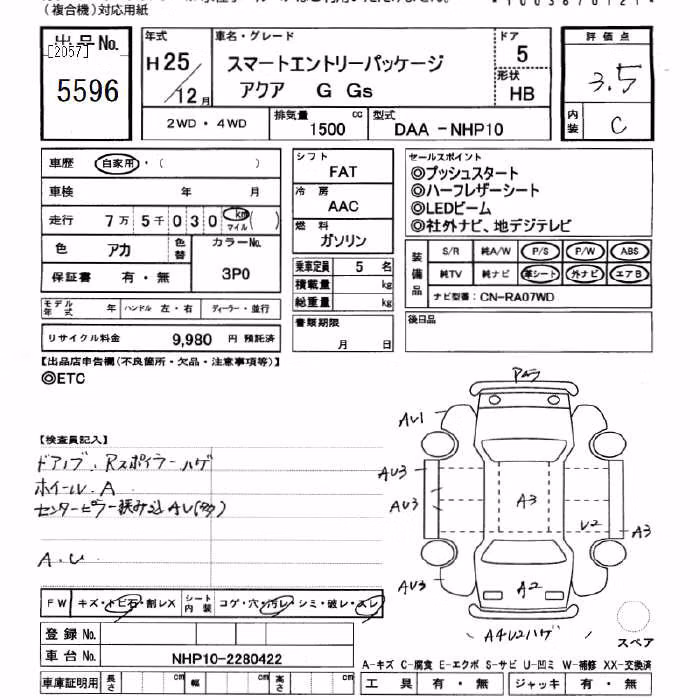 (複合機)対応用紙
出品No.
[2057]
5596
年式
H25/12月
車名・グレード
スマートエントリーパッケージ
アクア G Gs
ドア
5
形状
HB
評価点
3.5
内装
C
2WD・4WD
排気量
1500 cc
型式
DAA -NHP10
車歴 自家用・( )
車検 年 月
走行 7万5千030 km マイル ( )
色 アカ
色替
カラーNo.
3P0
保証書 有・無
モデル年式 年 ハンドル 左・右 ディーラー・並行
リサイクル料金 9,980 円 預託済
シフト
FAT
冷房
AAC
燃料
ガソリン
乗車定員 5 名
積載量 kg
総重量 kg
書類期限
月 日
セールスポイント
◎プッシュスタート
◎ハーフレザーシート
◎LEDビーム
◎社外ナビ、地デジテレビ
装備品
S/R 純A/W P/S P/W ABS
純TV 純ナビ 革シート 外ナビ エアB
ナビ型番: CN-RA07WD
後日品
【出品店申告欄(不良箇所・欠品・注意事項等)】
◎ETC
【検査員記入】
ドアノブ、Rスポイラー ハゲ
ホイール A
センターピラー挟み込 AU(多)
A.U
AU1
AU3
AU3
AU3
A3
U2
A3
A2
A4U2ハゲ
スペア
FW キズ・トビ石・割レX シート内装 コゲ・穴・汚レ・シミ・破レ・スレ
登録No.
車台No. NHP10-2280422
車庫証明用 長さ cm 幅 cm 高さ cm
A-キズ C-腐食 E-エクボ S-サビ U-凹ミ W-補修 XX-交換済
工具 有・無 ジャッキ 有・無